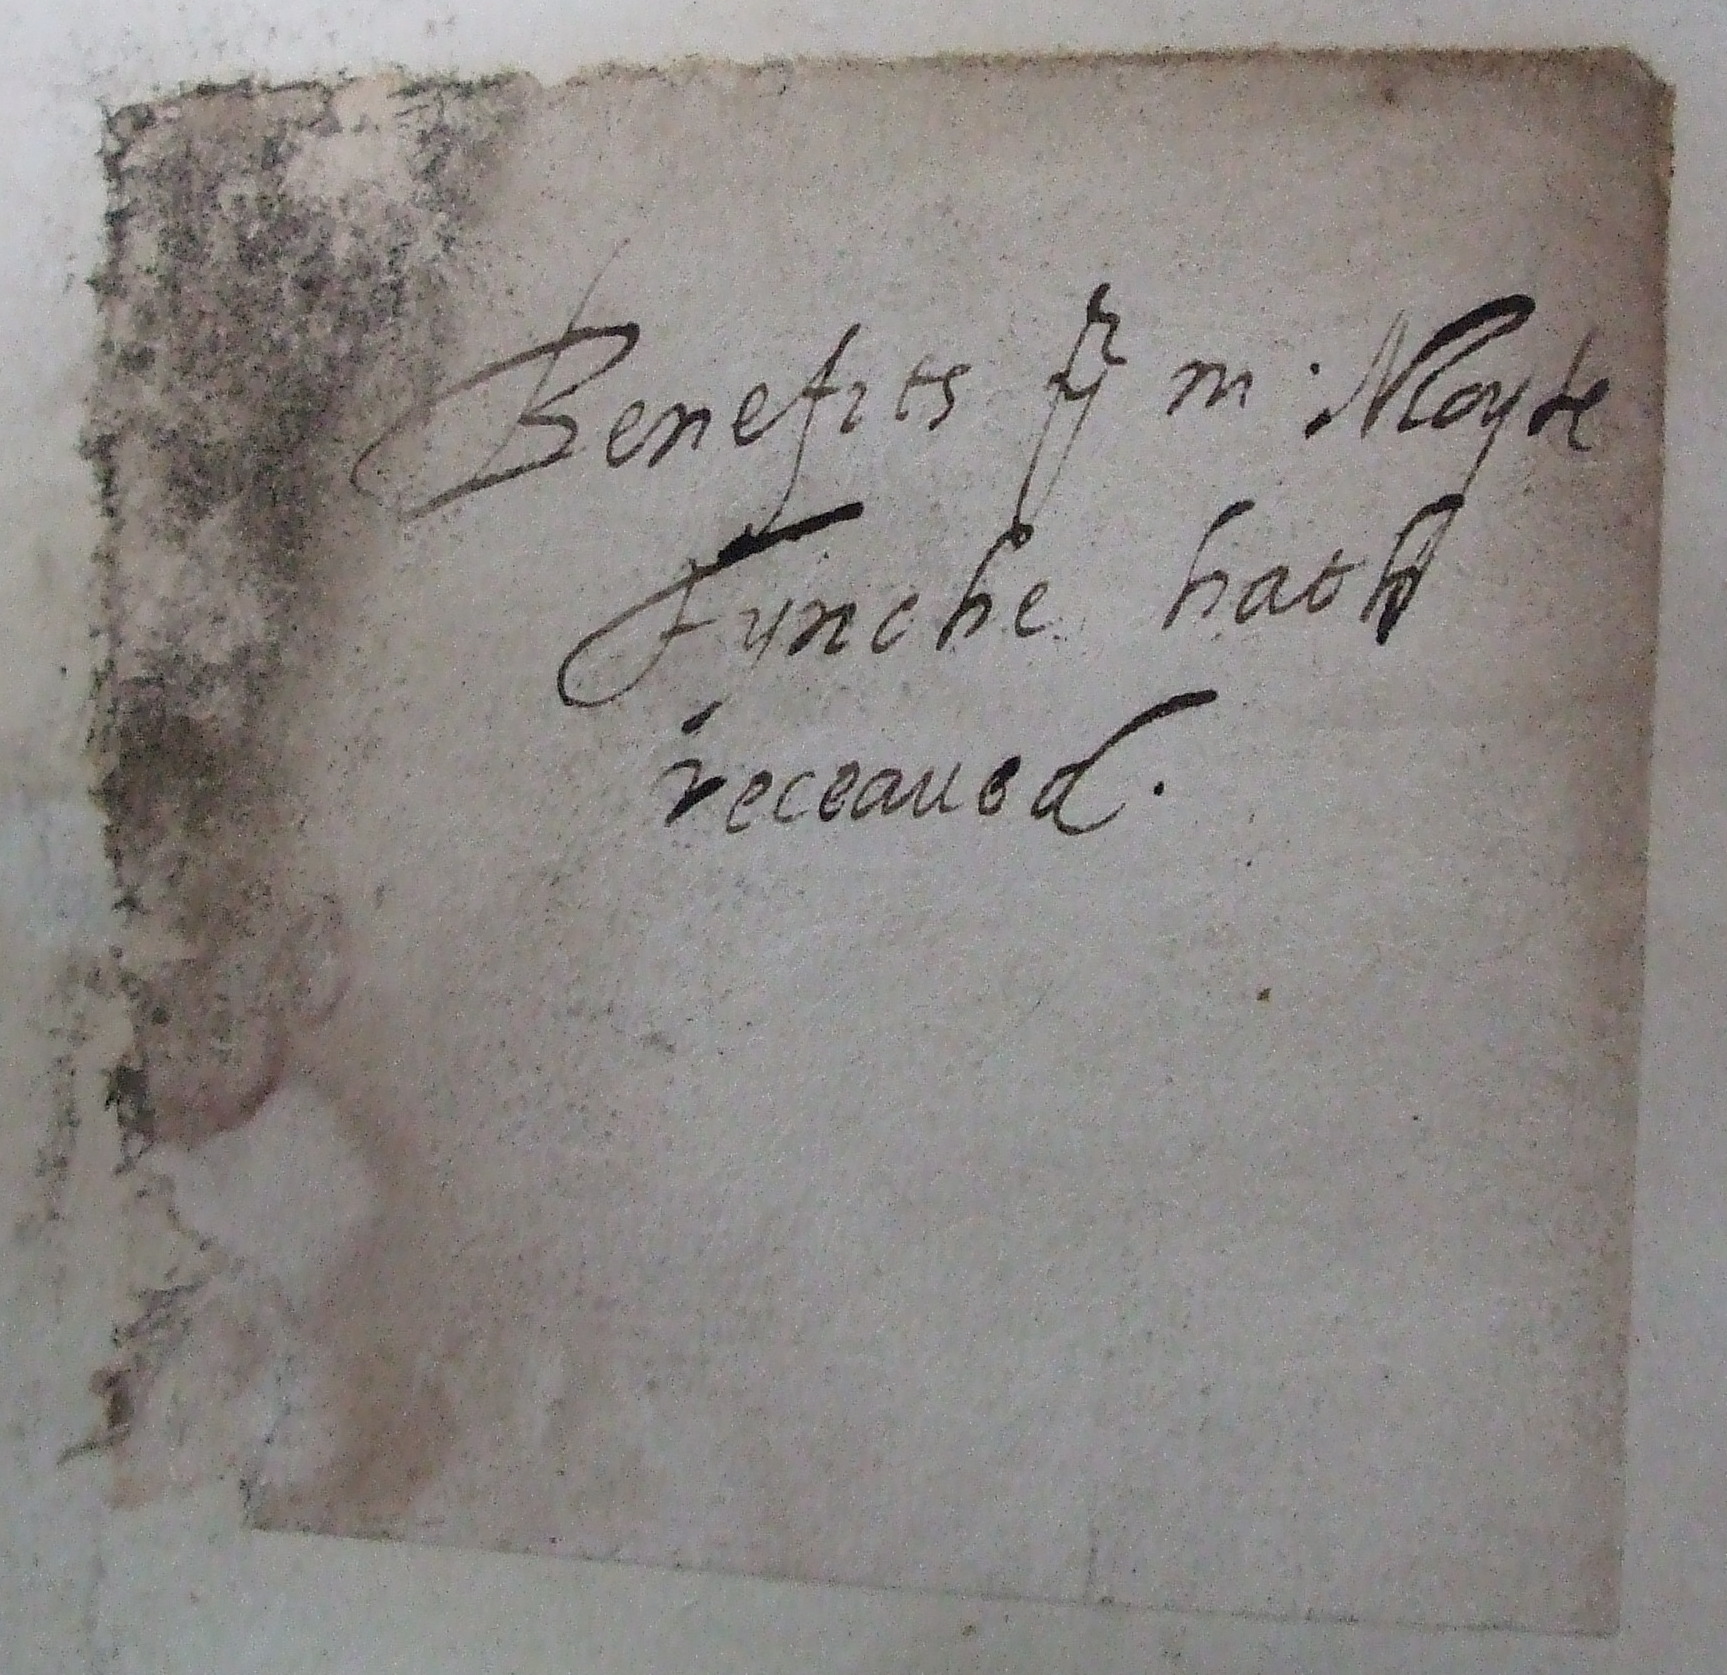 Benefits yt m. Moyle
Fynche hath
receaued.